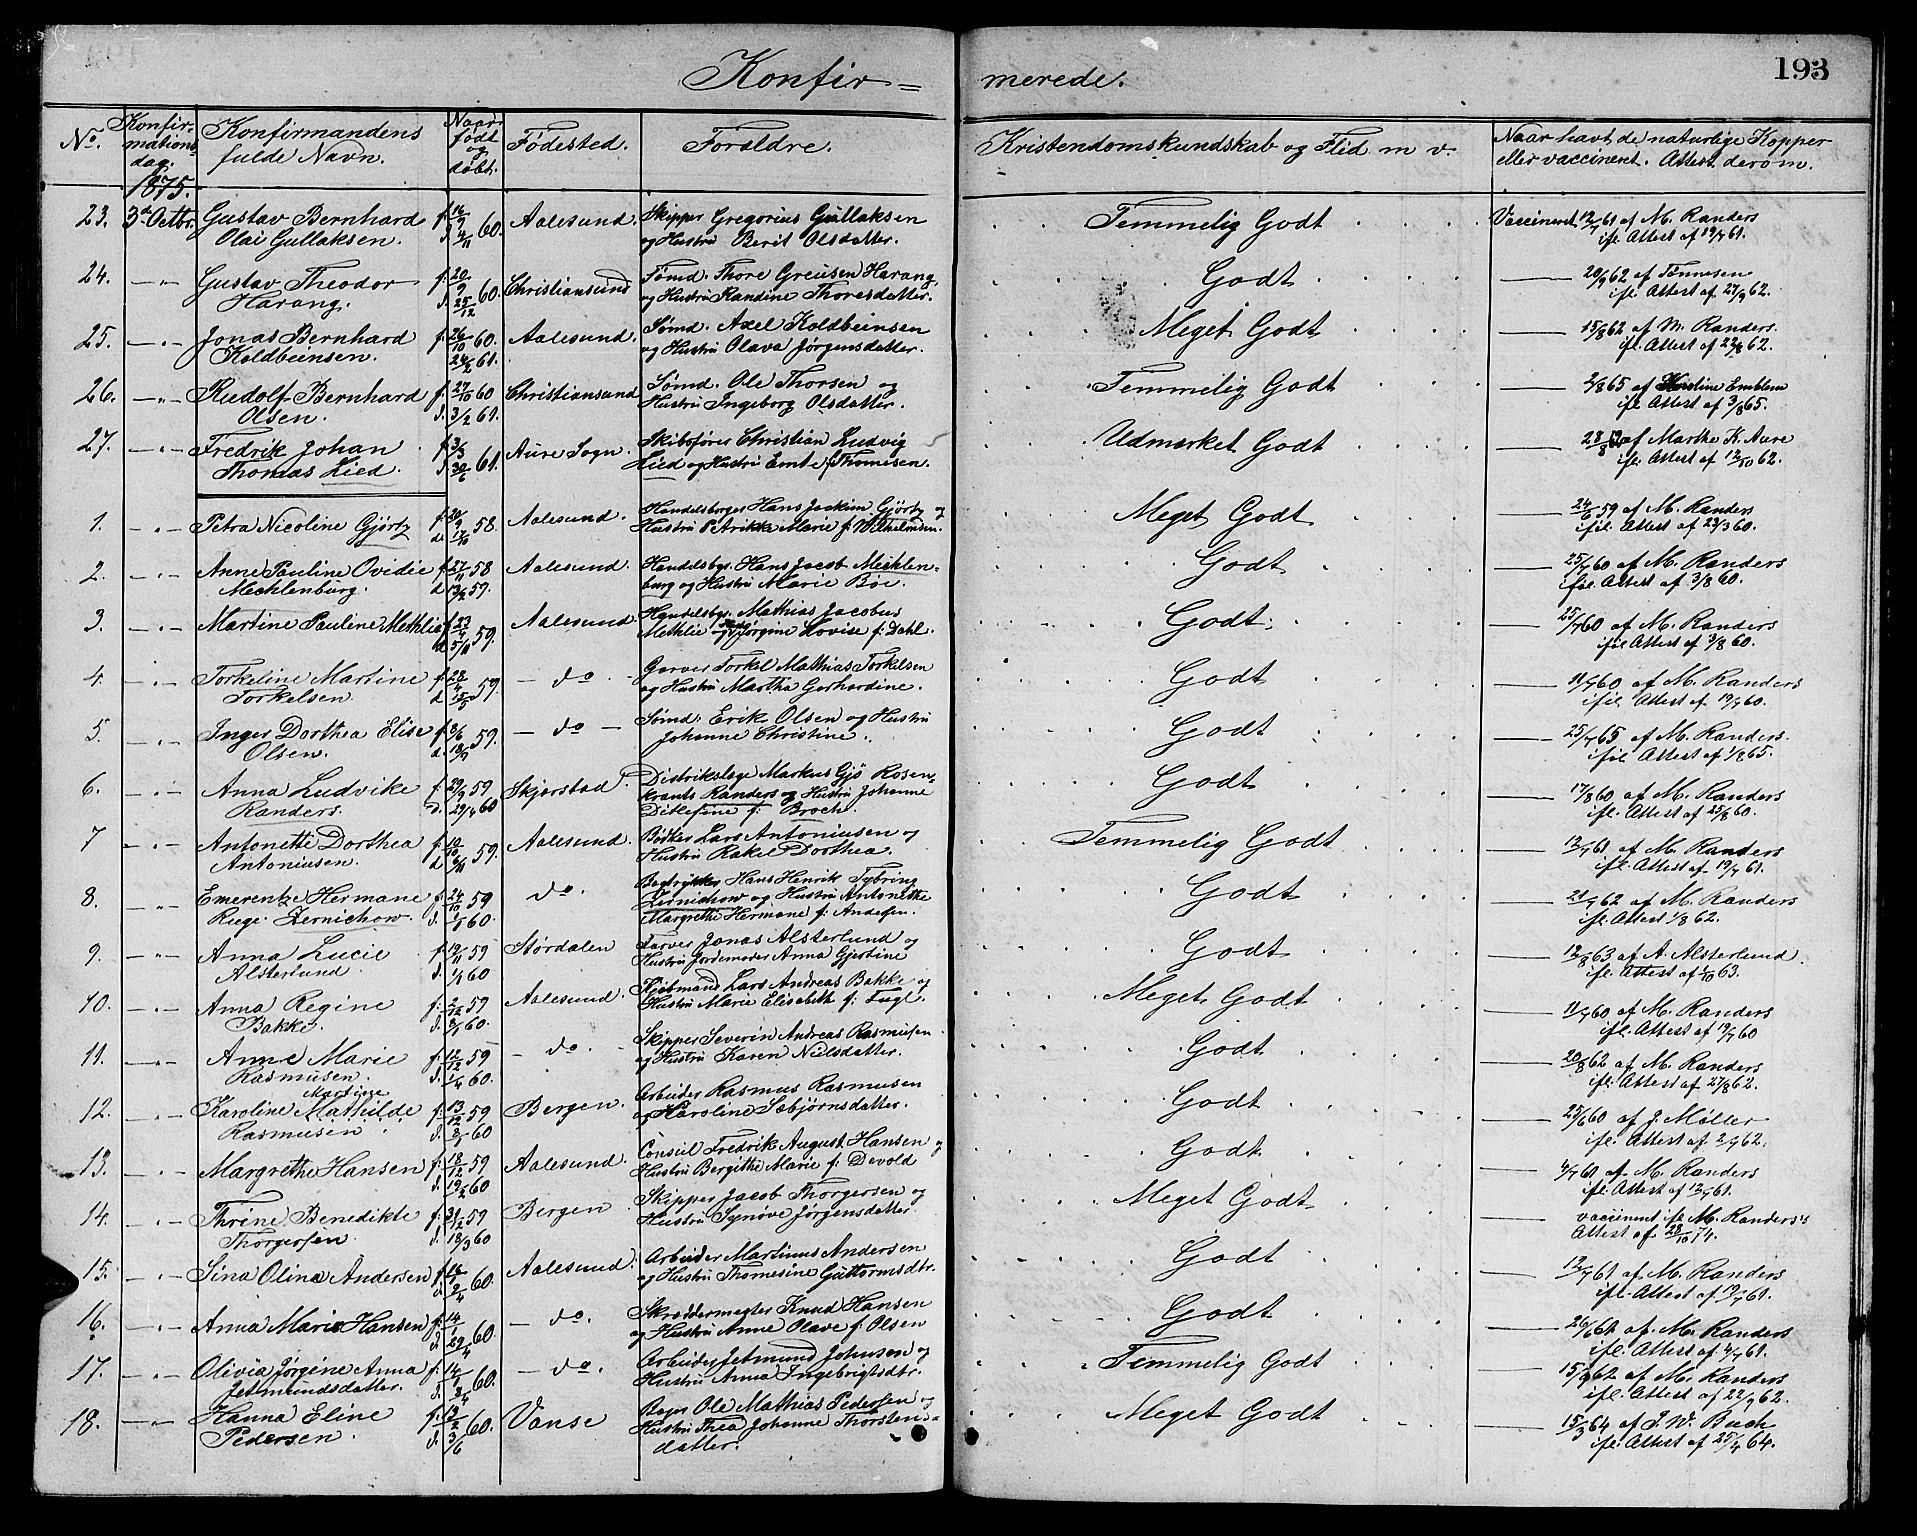 Konfir=
merede.
193
No.
Konfir-
mations
dag.
1875.
Konfirmandens
fulde Navn.
Naar
født
og
døbt.
Fødested.
Forældre.
Kristendomskundskab og Flid m v.
Naar havt de naturlige Kopper
eller vaccineret. Attest derom.
23. 3die Octbr. Gustav Bernhard f. 16/9 60. Aalesund. Skipper Gregorius Gullaksen Temmelig Godt Vaccineret 12/7 61 af M. Randers
Olai Gullaksen. d. 4/11 og Hustru Berit Olsdatter. ifl. Attest af 19/7 61.
24. -"- Gustav Theodor f. 20/9 60. Christiansund Sømd. Thore Greusen Harang Godt 20/9 62 af Tønnesen
Harang. d. 25/12 og Hustru Randine Thoresdatter. ifl. Attest af 27/9 62.
25. -"- Jonas Bernhard f. 26/10 60. Aalesund. Sømd. Axel Koldbeinsen Meget Godt 15/8 62 af M. Randers.
Koldbeinsen. 24/2 61. og Hustru Olava Jørgensdatter. ifl. Attest af 22/8 62.
26. -"- Rudolf Bernhard f. 27/10 60 Christiansund Sømd. Ole Thorsen og Temmelig Godt 2/8 65 af Karoline Emblem
Olsen. d. 3/2 61. Hustru Ingeborg Olsdatter. ifl. Attest af 3/8 65.
27. -"- Fredrik Johan f. 3/3 61. Aure Sogn. Skibsfører Christian Ludvig Udmærket Godt 28/8 62 af Marthe K. Aure
Thomas Lied. d. 30/6 Lied og Hustru Emte f. Thomesen. ifl. Attest af 12/10 62.
1. -"- Petra Nicoline Gjørtz f. 20/9 58. Aalesund. Handelsborger Hans Joakim Gjørtz og Meget Godt 24/6 59 af M. Randers
d. 17/10 Hustru Petrikke Marie f. Wilhelmsen. ifl. Attest af 23/3 60.
2. -"- Anne Pauline Ovidie f. 27/11 58 Aalesund. Handelsbgr. Hans Jacob Mechlen- Godt 25/7 60 af M. Randers
Mechlenburg. d. 13/2 59. burg og Hustru Marie Bøe. ifl. Attest af 3/8 60.
3. -"- Martine Pauline Methlie f. 23/4 59. Aalesund. Handelsbgr. Mathias Jacobus Godt. 25/7 60 af M. Randers
d. 5/6 Methlie og Jørgine Lovise f. Dahl. ifl. Attest af 3/8 60.
4. -"- Torkeline Martine f. 28/4 59. - do - Garver Torkel Mathias Torkelsen Godt 11/7 60 af M. Randers
Torkelsen. d. 25/5 og Hustru Martha Gerhardine. ifl. Attest af 19/7 60.
5. -"- Inger Dorthea Elise f. 3/6 59. - do - Sømd. Erik Olsen og Hustru Godt 25/7 65 af M. Randers.
Olsen. d. 18/7 Johanne Christine. ifl. Attest af 1/8 65.
6. -"- Anna Ludvike f. 29/9 59. Skjerstad. Distriktslæge Markus Gjø Rosen- Godt 17/8 60 af M. Randers
Randers. d. 29/4 60 krants Randers og Hustru Johanne ifl. Attest af 25/8 60.
Ditlefine f. Broch.
7 -"- Antonette Dorthea f. 10/10 59. Aalesund. Bødker Lars Antoniusen og Temmelig Godt 12/7 61 af M. Randers
Antoniusen. d. 6/11 Hustru Rakel Dorthea. ifl. Attest af 19/7 61.
8. -"- Emerentze Hermane f. 24/10 59 do. Bogtrykker Hans Henrik Tybring Godt 21/7 62 af M. Randers
Ruge Zernichow. d. 1/1 60. Zernichow og Hustru Antonette ifl. Attest 1/8 62.
Margrethe Hermane f. Andesen.
9. -"- Anna Lucie f. 19/11 59 Størdalen Farver Jonas Alsterlund Godt 12/8 63 af A. Alsterlund
Alsterlund d. 1/1 60 og Hustru Jordemoder Anna Gjertine ifl. Attest af 1/10 63.
10. -"- Anna Regine f. 2/12 59 Aalesund. Kjøbmand Lars Andreas Bakke og Meget Godt 11/7 60 af M. Randers
Bakke. d. 8/1 60. Hustru Marie Elisabeth f. Fugl. ifl. Attest af 19/7 60
11. -"- Anne Marie f. 12/12 59 - do. - Skipper Severin Andreas Rasmusen Godt 20/8 62 af M. Randers
Rasmusen. d. 1/4 60. og Hustru Karen Nielsdatter. ifl. Attest af 27/8 62.
12. -"- Karoline Martine Mathilde f. 13/12 59 Bergen. Arbeider Rasmus Rasmusen Godt 25/6 60 af J. Møller
Rasmusen d. 8/1 60 og Karoline Sæbjørnsdatter. ifl. Attest af 2/7 62.
13. -"- Margrethe Hansen f. 18/12 59 Aalesund. Consul Fredrik August Hansen og Godt 4/7 61 af M. Randers
d. 19/2 60 Hustru Bergithe Marie f. Devold ifl. Attest af 12/7 61.
14. -"- Thrine Benedikte f. 31/12 59 Bergen Skipper Jacob Thorgersen og Meget Godt vaccineret ifl. M. Randers's
Thorgersen. d. 18/3 60 Hustru Synøve Jørgensdatter Attest af 28/10 74.
15. -"- Sina Olina Andersen f. 14/1 60. Aalesund. Arbeider Martinus Andersen Godt 12/7 61 af M. Randers
d. 9/4 og Hustru Thomesine Guttormsdtr. ifl. Attest af 19/7 61.
16. -"- Anna Marie Hansen f. 14/1 60. - do. Skræddermester Knud Hansen Godt 26/6 61 af M. Randers
d. 29/4 og Hustru Anne Olave f. Olsen ifl. Attest af 4/7 61.
17. -"- Olivia Jørgine Anna f. 14/1 60. - do. Arbeider Jetmund Johnsen og Temmelig Godt 15/9 62 af M. Randers
Jetmundsdatter. d. 8/4 Hustru Anna Ingebrigtsdtr. ifl. Attest af 22/9 62.
18. -"- Hanna Eline f. 13/2 60. Vanse Bager Ole Mathias Pedersen og Meget Godt 15/3 64 af J. W. Buch
Pedersen. d. 3/6 Hustru Thea Johanne Thorstens- ifl. Attest af 25/4 64.
datter.